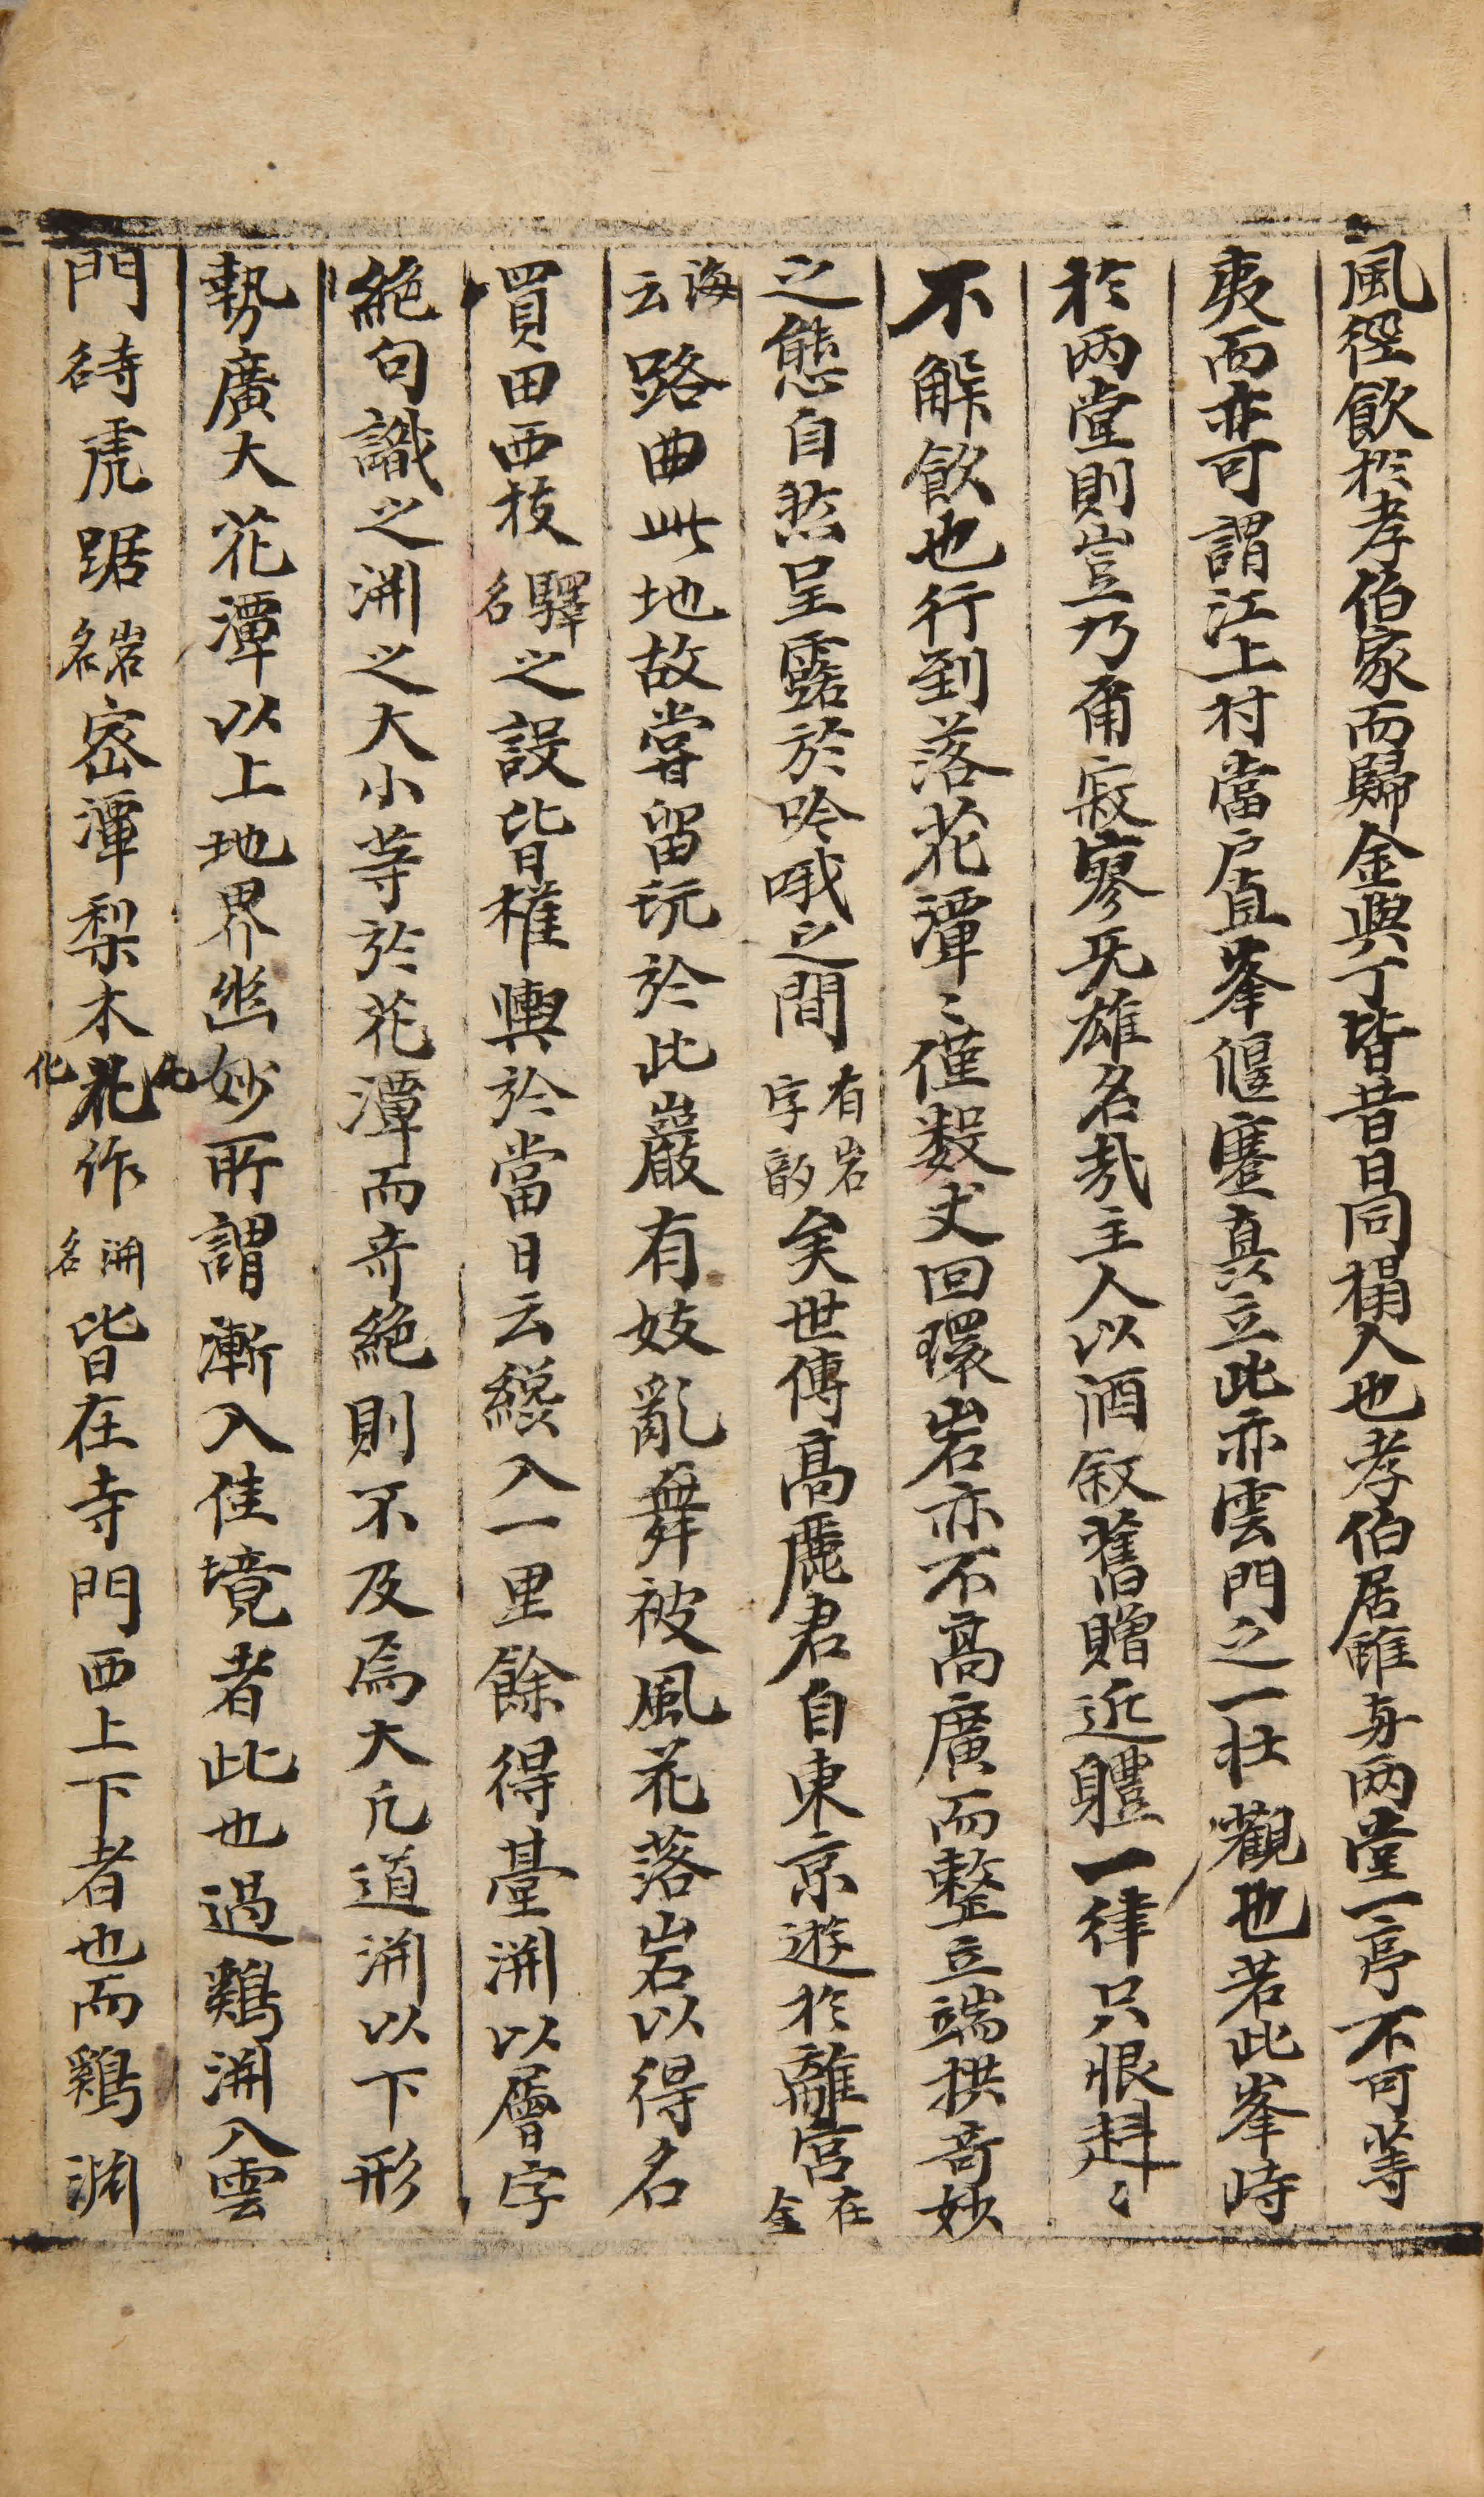 風徑飮於孝伯家而歸金與丁皆昔日同榻人也孝伯居雖与兩堂一亭不可等
夷而亦可謂江上村當戶直峯偃蹇真立此亦雲門之一壯觀也若此峯時
於兩堂則豈乃甭寂寥无雄名哉主人以酒敍舊贈近軆一律只恨赳〻
不解飮也行到落花潭〻僅数丈回環岩亦不高廣而整立端拱奇妙
之態自然呈露於吟哦之間有岩字韵矣世傳高麗君自東京遊於離宮在金
海云路由此地故嘗留玩於此巖有妓亂舞被風花落岩以得名
買田西枝驛名之設皆權輿於當日云緩入一里餘得臺渊以層字
絶句識之渊之大小等於花潭而奇絶則不及焉大凢道渊以下形
勢廣大花潭以上地界幽妙所謂漸入佳境者此也過鷄渊入雲
門待虎踞岩名密潭梨木花作渊名皆在寺門西上下者也而鷄渊
化